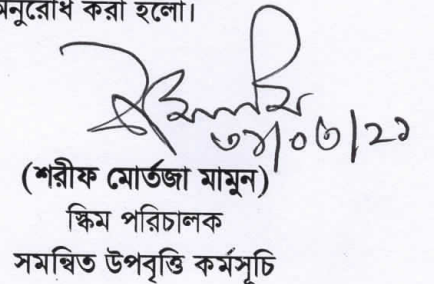 অনুরোধ করা হলো।
(শরীফ মোর্তজা মামুন)
স্কিম পরিচালক
সমন্বিত উপবৃত্তি কর্মসূচি